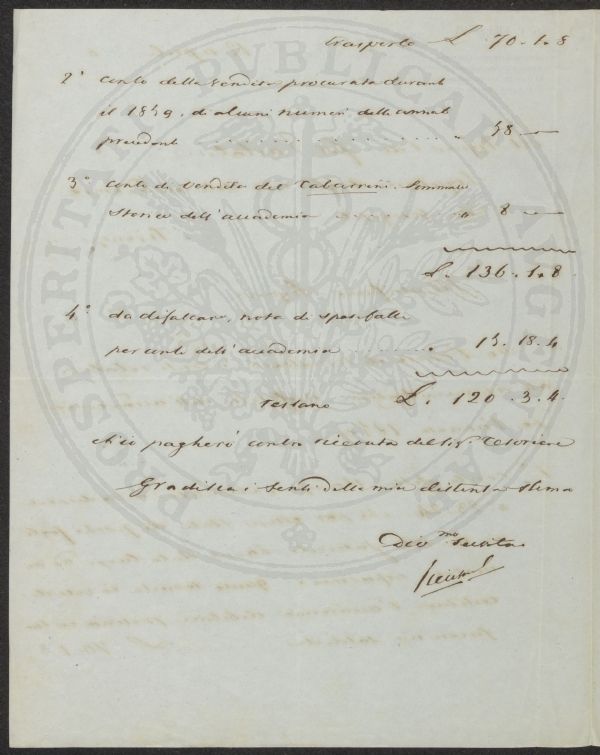 trasporto £ 70.1.8
2° conto della vendita procurata durante
il 1849. di alcuni numeri delle annate
precedenti . . . . . . . . . . " 58 —
3° conto di vendita del Tabarrini. Sommario
Storico dell'accademia . . . . . . " 8 —
£. 136.1.8
4° da difalcare, nota di spese fatte
per conto dell'accademia . . . . . . . 15.18.4
restano £. 120.3.4
che io pagherò contro ricevuta del Sig. Tesoriere
Gradisca i sensi della mia distinta stima
Dev.mo Servitore
PROSPERITATI PUBLICAE AUGENDAE